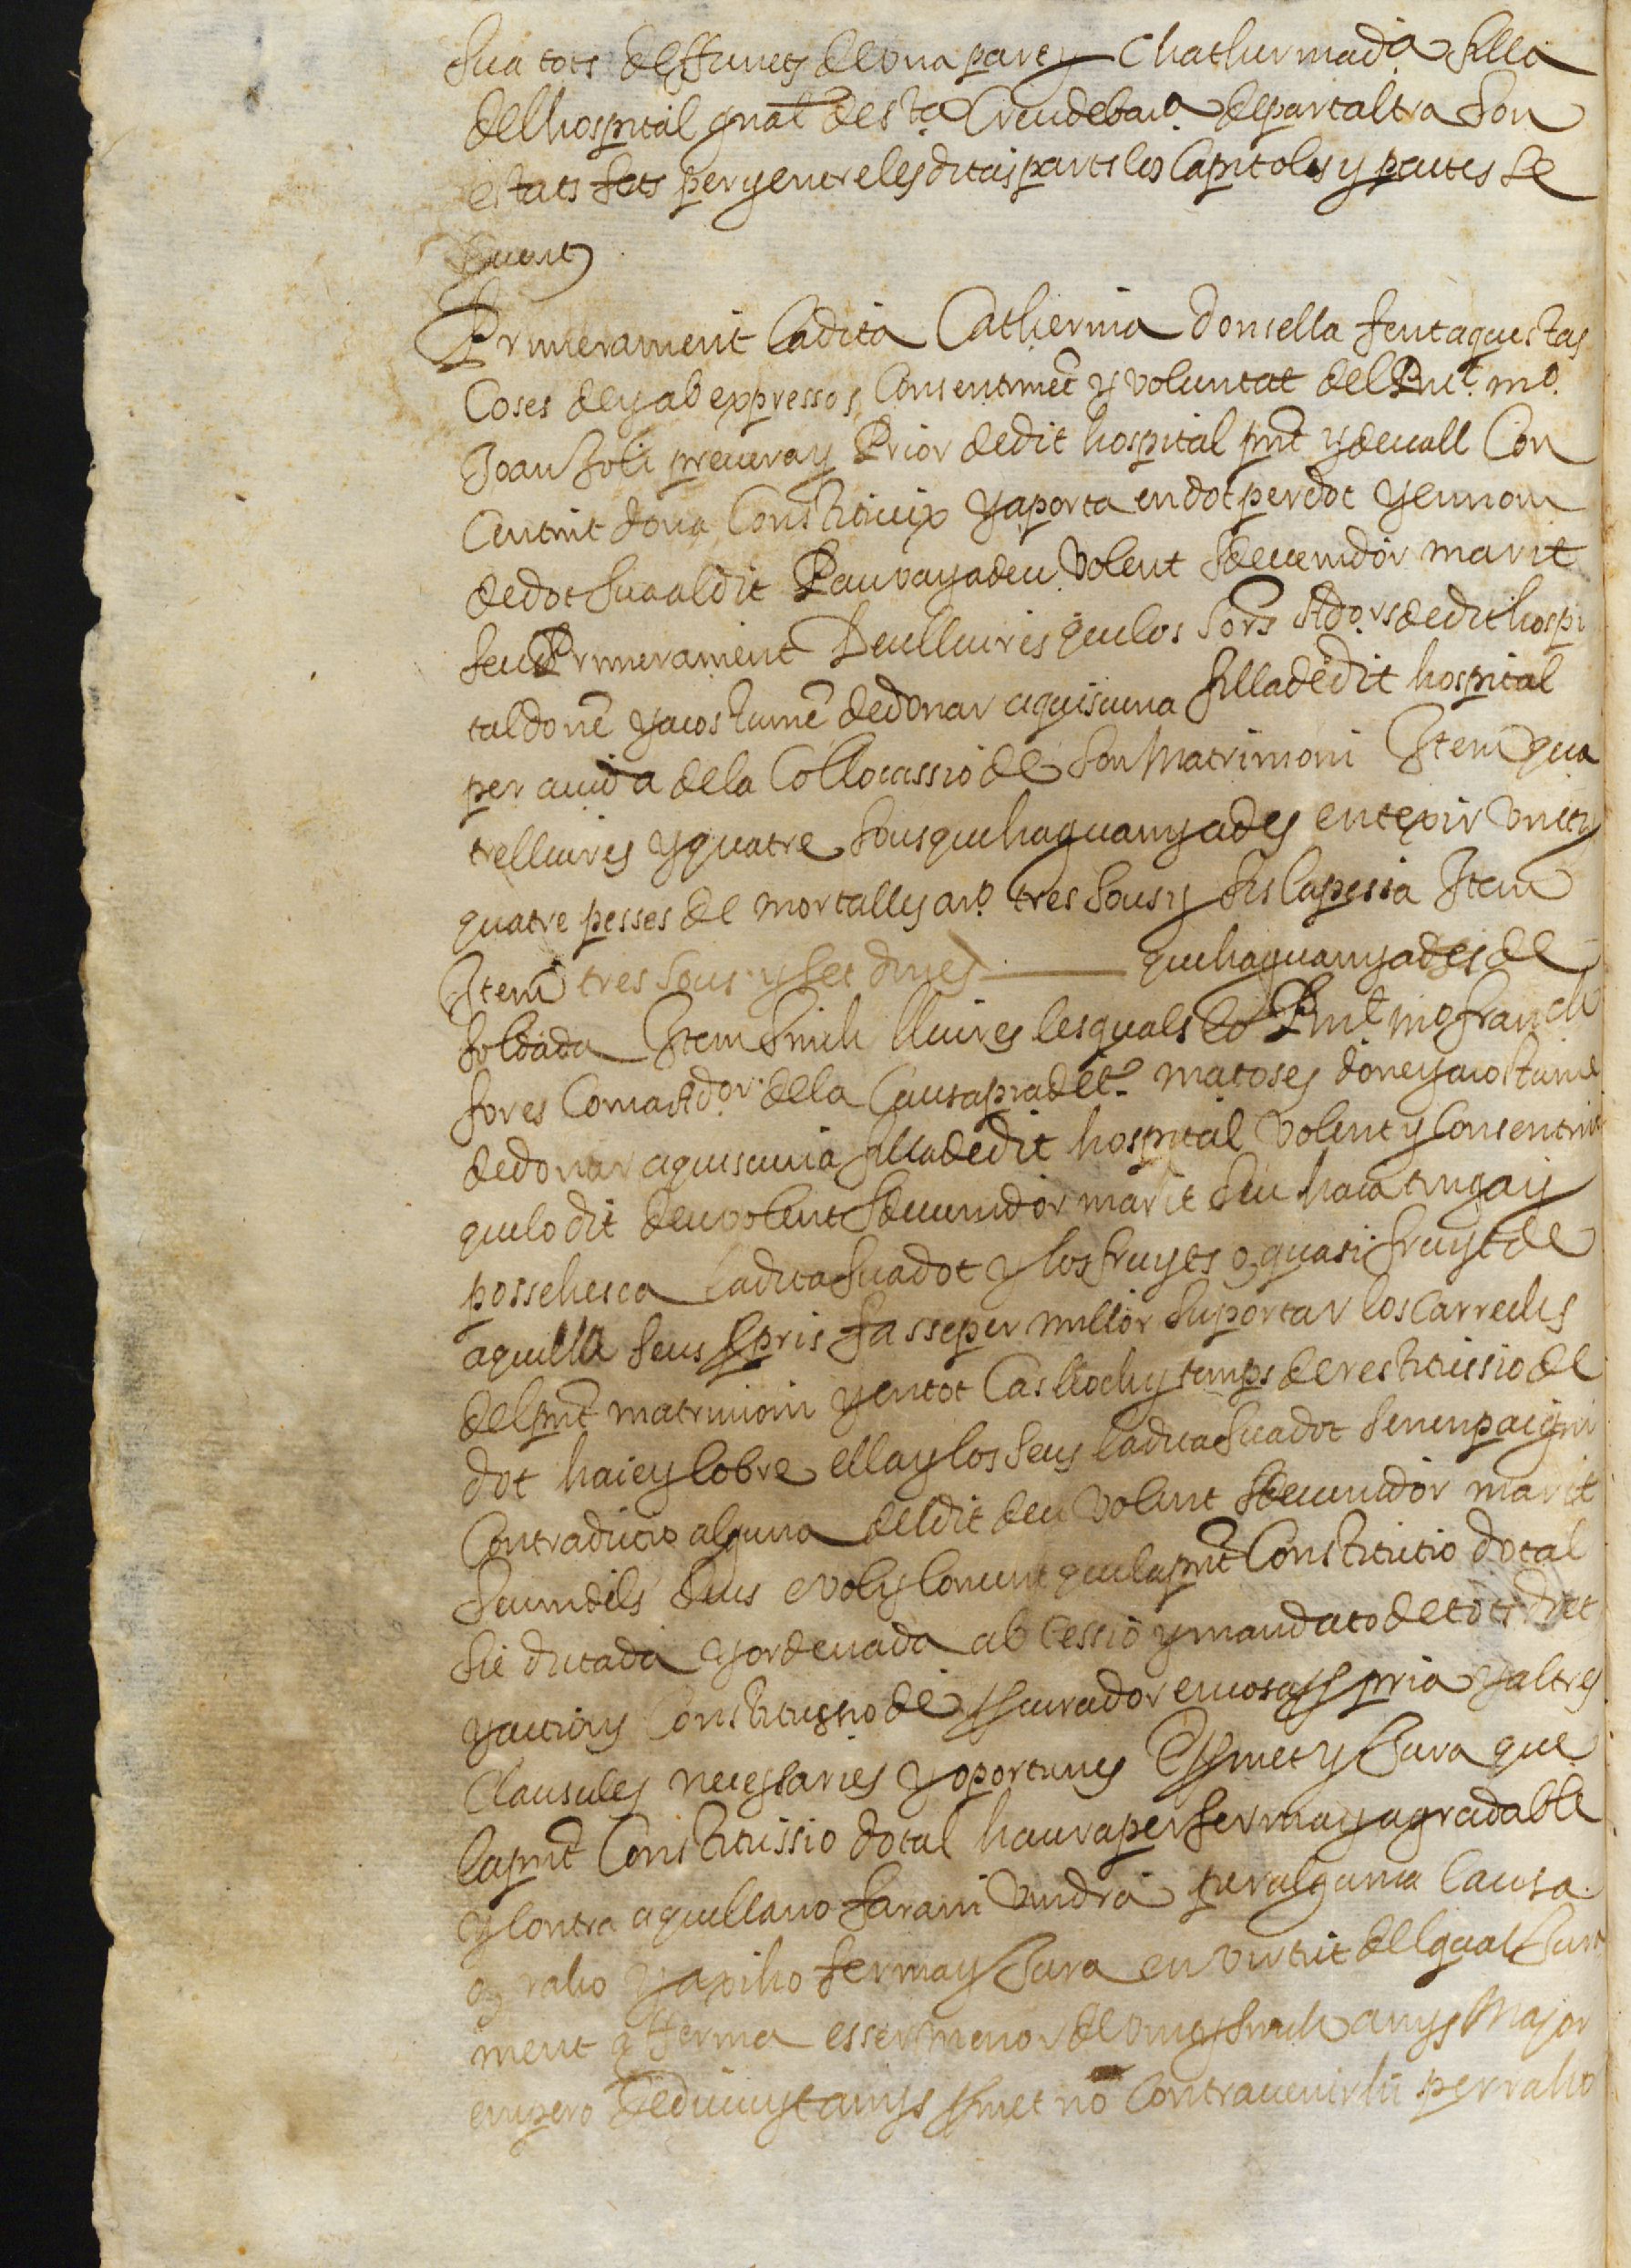 sua tots deffuncts de una part y Chatherinada filla
del hospital gnāl desta Ciudebarª de part altra son
estats fets per y entre les ditas parts los Capitols y pactes se
guents
Primerament la dita Catherina donsella fent aquestas
Coses de y ab expressos Consentimēt y voluntat del Rntᵗ mº
Joan soli prevere y Prior de dit hospital pnt y devall Con
sentint dona Constitueix y aporta en dot per dot y en nom
de dot sua al dit Pau vayadeu volent sdevenidor marit
seu Primerament Deu lliures que los sors Adors de dit hospi
tal donē y acostumē de donar a quiscuna filla de dit hospital
per aiuda de la Collocassio de son Matrimoni Item qua
tre lliures y quatre sous que ha guanyades en texir vint y
quatre pesses de mortalles a rº tres sous y sis la pessa Item
Item tres sous y set dines que ha guanyades de
soldada Item sinch lliures les quals lo Rnt mº franch
fores Com a Ador de la Causa pia de Matoses done y acostume
de donar a quiscuna filla de dit hospital volent y Consentint
que lo dit deu volent sdevenidor marit seu haia tinga y
possehesca la dita sua dot y los fruyts o quasi fruyt de
aquella seus ppris fasse per millor suportar los Carrechs
del pnt matrimoni y en tot Cas lloch y temps de restitussio de
dot haie y Cobre ella y los seus la dita sua dot sens empaig ni
Contradictio alguna del dit deu volent sdevenidor marit
seu ni dels seus e vol y Consent que la pnt Constitutio dotal
sie dictada y ordenada ab cessio y mandato de tots drets
y actions Constitussio de pcurador en cosa ppria y altres
Clausules necessaries y oportunes E pmet y Jura que
la pnt Constitussio dotal haura per ferma y agradable
y Contra aquella no fara ni vindra per alguna Causa
o raho y axi ho ferma y Jura en virtut del qual Jura
ment afferma esser menor de vint y sinch anys Major
empero de divuyt anys pmet no Contravenirhi per raho